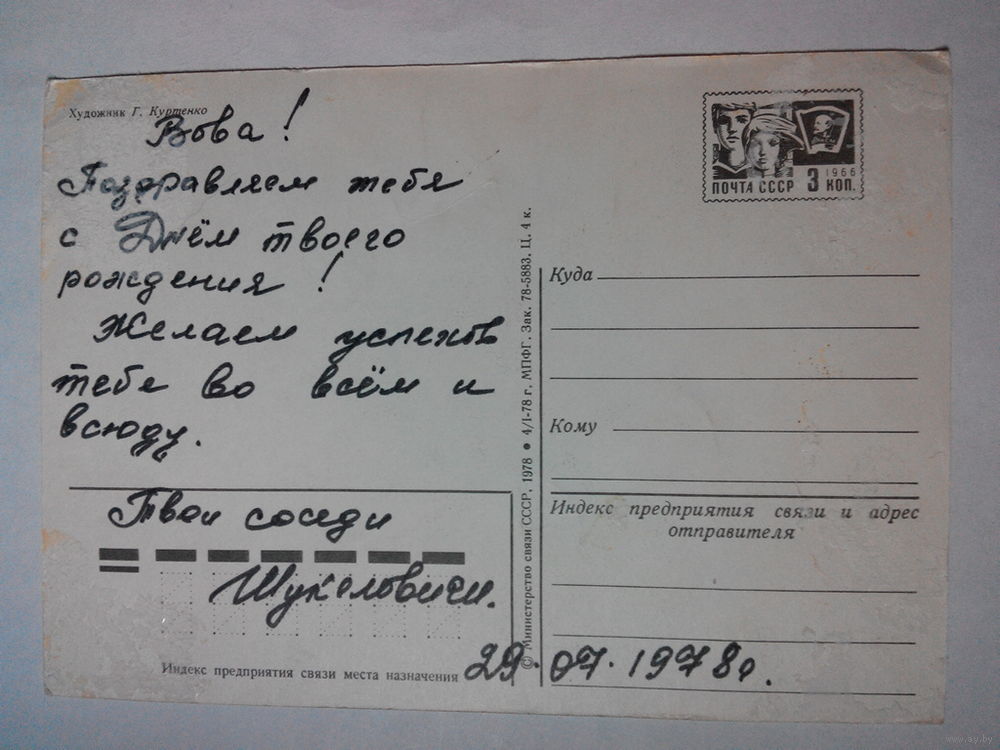 Художник Г. Куртенко
Вова!
Поздравляем тебя
с Днём твоего
рождения!
Желаем успехов
тебе во всём и
всюду.
Твои соседи
Шукеловичи.
29.07.1978г.
Индекс предприятия связи места назначения
© Министерство связи СССР, 1978 • 4/I-78 г. МПФГ. Зак. 78-5883. Ц. 4 к.
1966
ПОЧТА СССР 3 КОП.
Куда
Кому
Индекс предприятия связи и адрес
отправителя
www.ay.by